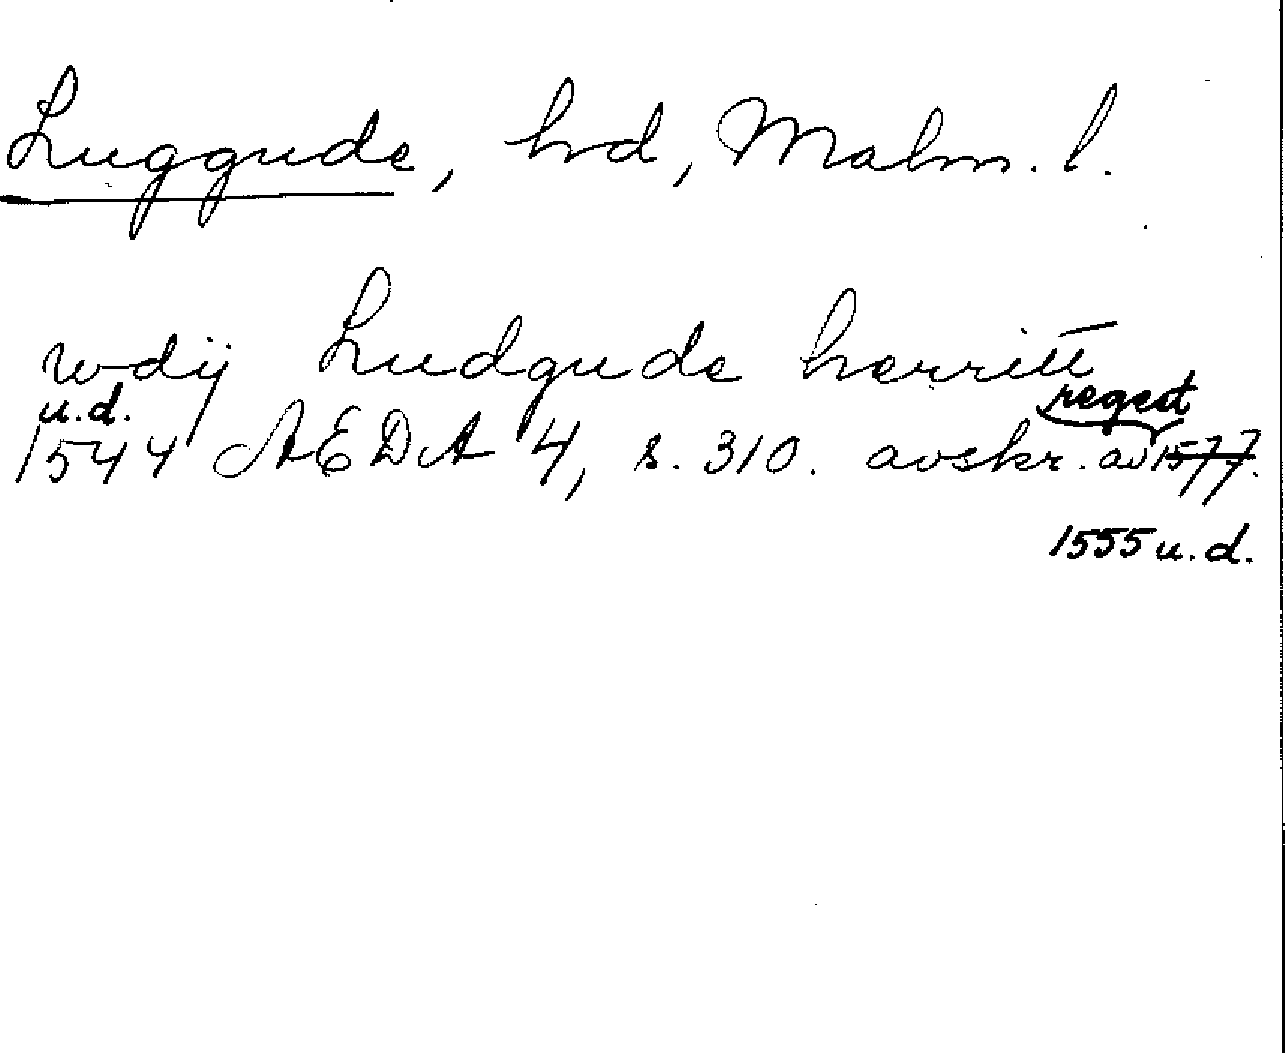 Luggude, hrd, Malm. l.
wdij Ludgude herritt
u.d.
regest
1544 AEDA 4, s. 310. avskr. av 1577.
1555 u.d.